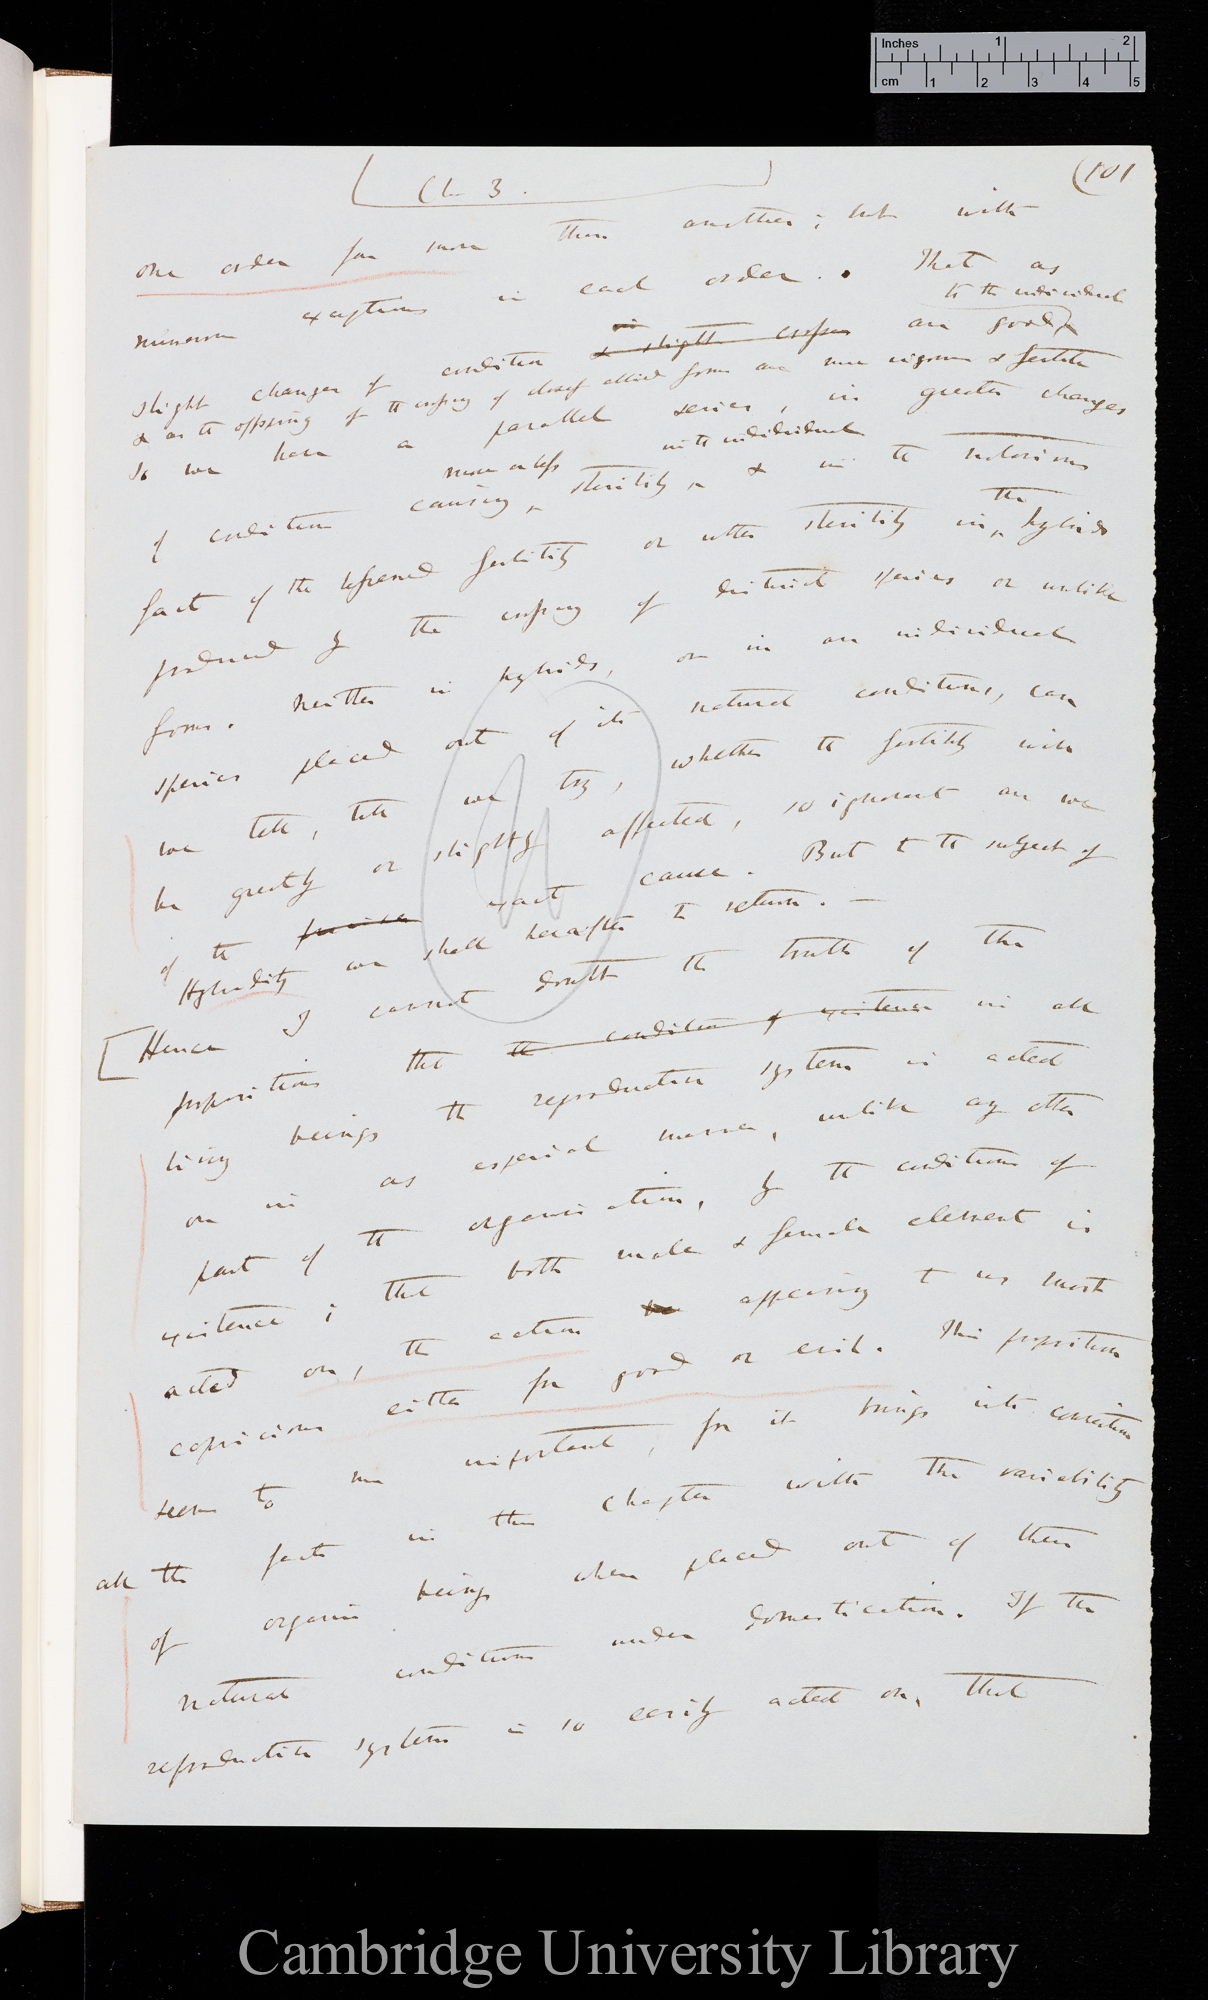 Inches 1 2
cm 1 2 3 4 5
(101
Ch 3.
one order far more than another; but with
numerous exceptions in each order. That as
to the individual
slight changes of condition & slight crosses are good
& as the offspring of the crossing of closely allied forms are more vigorous & fertile
so we have a parallel series, in greater changes
more or less in the individual
of condition causing sterility, & in the notorious
the
fact of the lessened fertility or utter sterility in hybrids
produced by the crossing of distinct species or unlike
forms. Neither in hybrids, or in an individual
species placed out of its natural conditions, can
we tell, till we try, whether the fertility will
be greatly or slightly affected, so ignorant are we
of the precise exact cause. But to the subject of
Hybridity we shall hereafter to return. —
[Hence I cannot doubt the truth of the
proposition that the condition of existence in all
living beings the reproductive system is acted
on in an especial manner, unlike any other
part of the organisation, by the conditions of
existence; that both male & female element is
acted on, the action appearing to us most
capricious either for good or evil. This proposition
seems to me important, for it brings into connection
all the facts in this chapter with the variability
of organic beings when placed out of their
natural conditions under domestication. If the
reproductive system is so easily acted on, that
Cambridge University Library